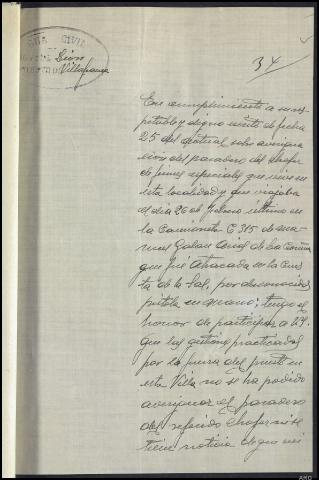 GUARDIA CIVIL
León
Villafranca
34
En cumplimiento a su res-
petable y digno escrito de fecha
25 del actual, sobre averigua
ción del paradero del chofer
de pimes especiales que vive en
esta localidad y que viajaba
el día 26 de Febrero último en
la camioneta C 315 de
Galan de La Coruña
que fué atracada en la Cues
ta de la Sal, por desconocidos
pistola en mano; tengo el
honor de participar a
que las gestiones practicadas
por la fuerza del puesto en
esta Villa no se ha podido
averiguar el paradero
del referido chofer ni se
tiene noticia de que